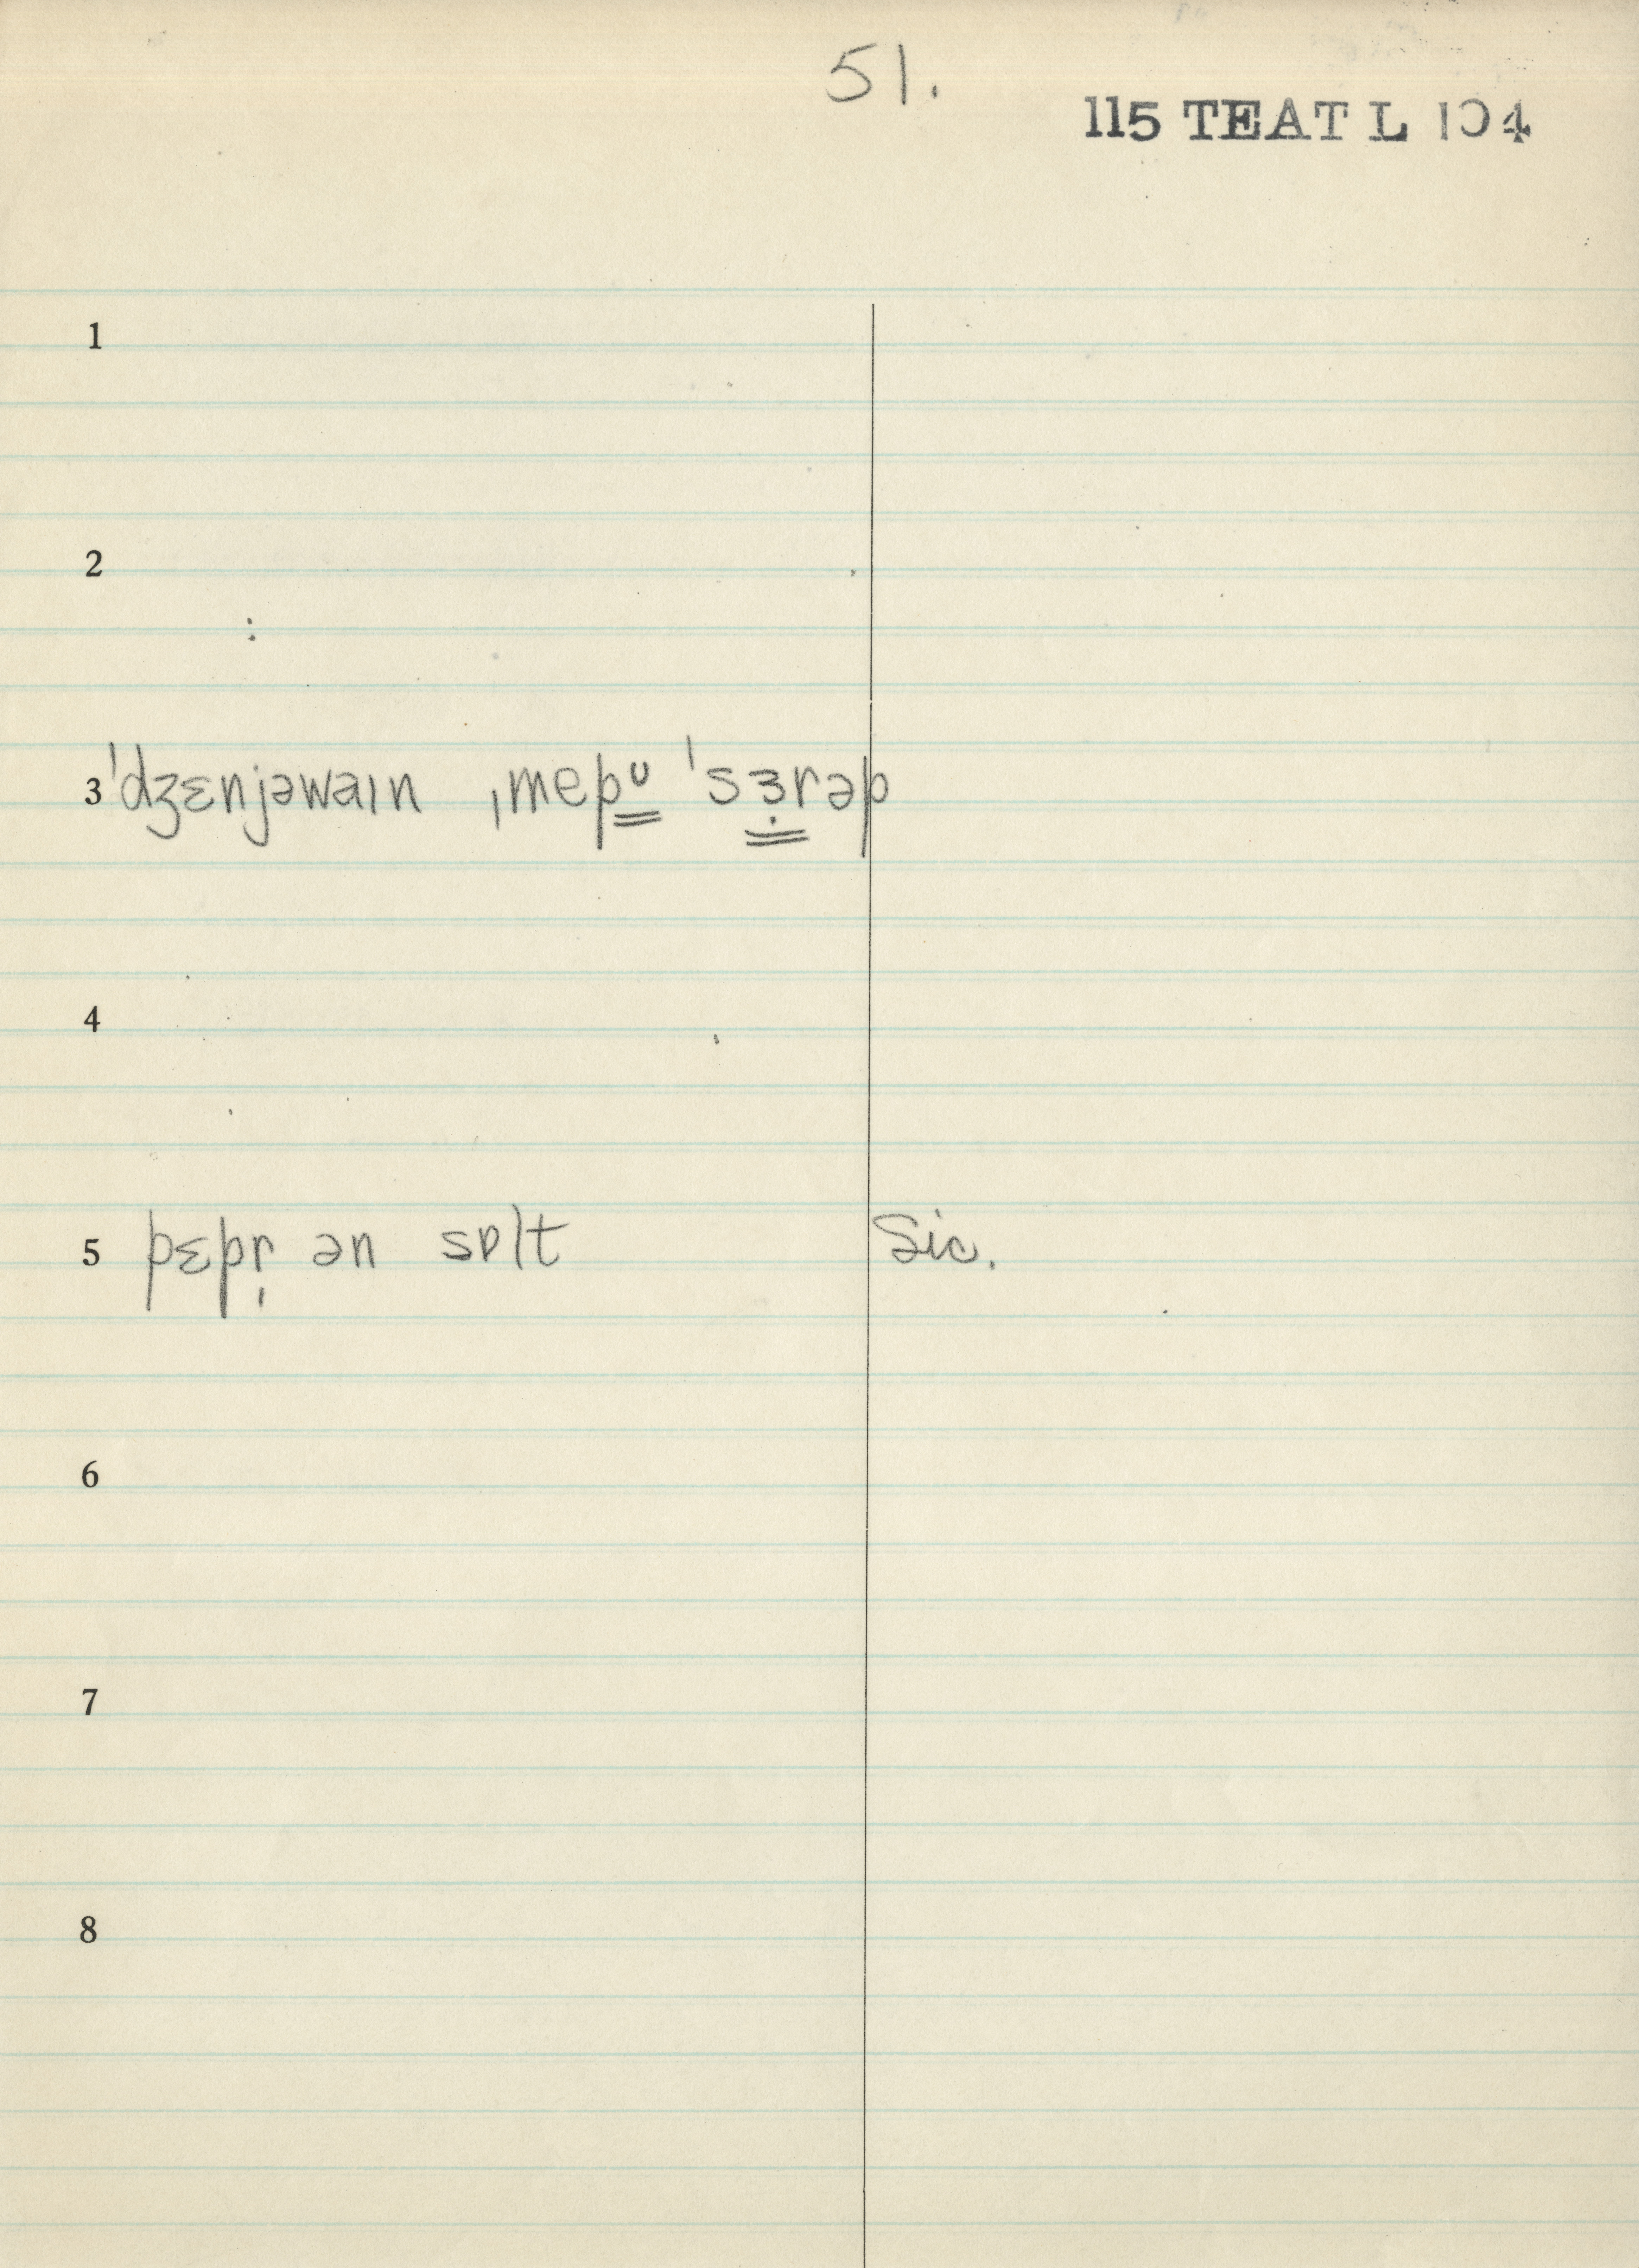 51.
115 TEAT L 104
1
2
3 ˈdʒɛnjəwaɪn ˌmepᶷ̳ ˈsɜ̣̳rəp
4
5 pɛpr̩ ən sɒlt Sic.
6
7
8